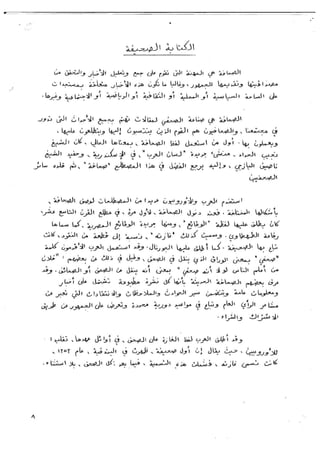 الكتابة الصحيفة
الصحافة هي المهنة التي تقوم على جمع وتحليل الأخبار والتحقق من
مصداقيتها وتقديمها للجمهور، وغالبا ما تكون هذه الأخبار متعلقة بمستجدات
على الساحة السياسية أو المحلية أو الثقافية أو الرياضية أو الاجتماعية وغيرها.
الصحافة هي صناعة الصحفي المقالات تقوم بجميع الأحداث التي تدور
في مجتمعنا، والصحافيون هم القوم الذين ينتسبون إليها ويتطلعون عليها،
ويعملون بها. أول من استعمل لفظ الصحافة، بمعناها الحالي، كان الشيخ
نجيب الحداد، منشئ جريدة "لسان العرب"، في الإسكندرية، وحفيد الشيخ
ناصيف اليازجي، وإليه يرجع الفضل في هذا المصطلح "صحافة"، ثم قلده سائر
الصحفيين
استخدم العرب والأوروبيون عديدا من المصطلحات لوصف الصحافة،
بأشكالها المختلفة، فعند دخول الصحافة، لأول مرة، في مطلع القرن التاسع عشر،
كان يطلق عليها لفظة "الوقائع"، ومنها جريدة الوقائع المصرية، كما سماها
رفاعة الطهطاوي. وسميت كذلك "غازتة"، نسبة إلى قطعة من النقود، كانت
تباع بها الصحيفة. كما أطلق عليها الجورنال. وقد استعمل العرب الأقدمون كلمة
"صحفي" بمعنى الوراق الذي ينقل في الصحف، وقيل في ذلك عن بعضهم: "فلان
من أعلم الناس لولا أنه صحفي" بمعنى أنه ينقل عن الصحف أو الصحائف. وقد
عرف بعضهم الصحافة الحديثة بأنها كل نشرة مطبوعة تشتمل على أخبار
ومعلومات عامة وتتضمن سير الحوادث والملاحظات والانتقادات التي تعبر عن
مشاعر الرأي العام وتباع في مواعيد دورية محددة وتعرض على الجمهور عن طريق
الاشتراك والشراء.
وقد أطلق العرب لفظ الغازتة على الصحف، في أوائل عهدها، تقليدا
للأوروبيين، حيث يقال إن أول صحيفة، ظهرت في البندقية، عام ١٥٦٣،
كانت تسمى غازتة، فشملت هذه التسمية، فيما بعد، كل الصحف، بلا استثناء.